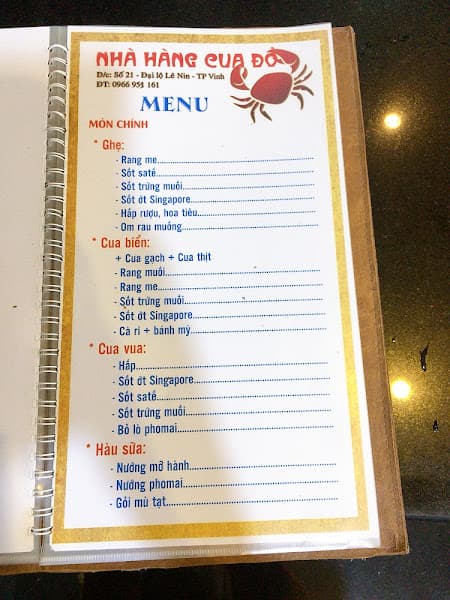 NHÀ HÀNG CUA ĐỎ
Đ/c: Số 21 - Đại lộ Lê Nin - TP Vinh
ĐT: 0966 951 161
MENU
MÓN CHÍNH
* Ghẹ:
- Rang me
- Sốt satế
- Sốt trứng muối
- Sốt ớt Singapore
- Hấp rượu, hoa tiêu
- Om rau muống
* Cua biển:
+ Cua gạch + Cua thịt
- Rang muối
- Rang me
- Sốt trứng muối
- Sốt ớt Singapore
- Cà ri + bánh mỳ
* Cua vua:
- Hấp
- Sốt ớt Singapore
- Sốt satế
- Sốt trứng muối
- Bỏ lò phomai
* Hàu sữa:
- Nướng mỡ hành
- Nướng phomai
- Gỏi mù tạt